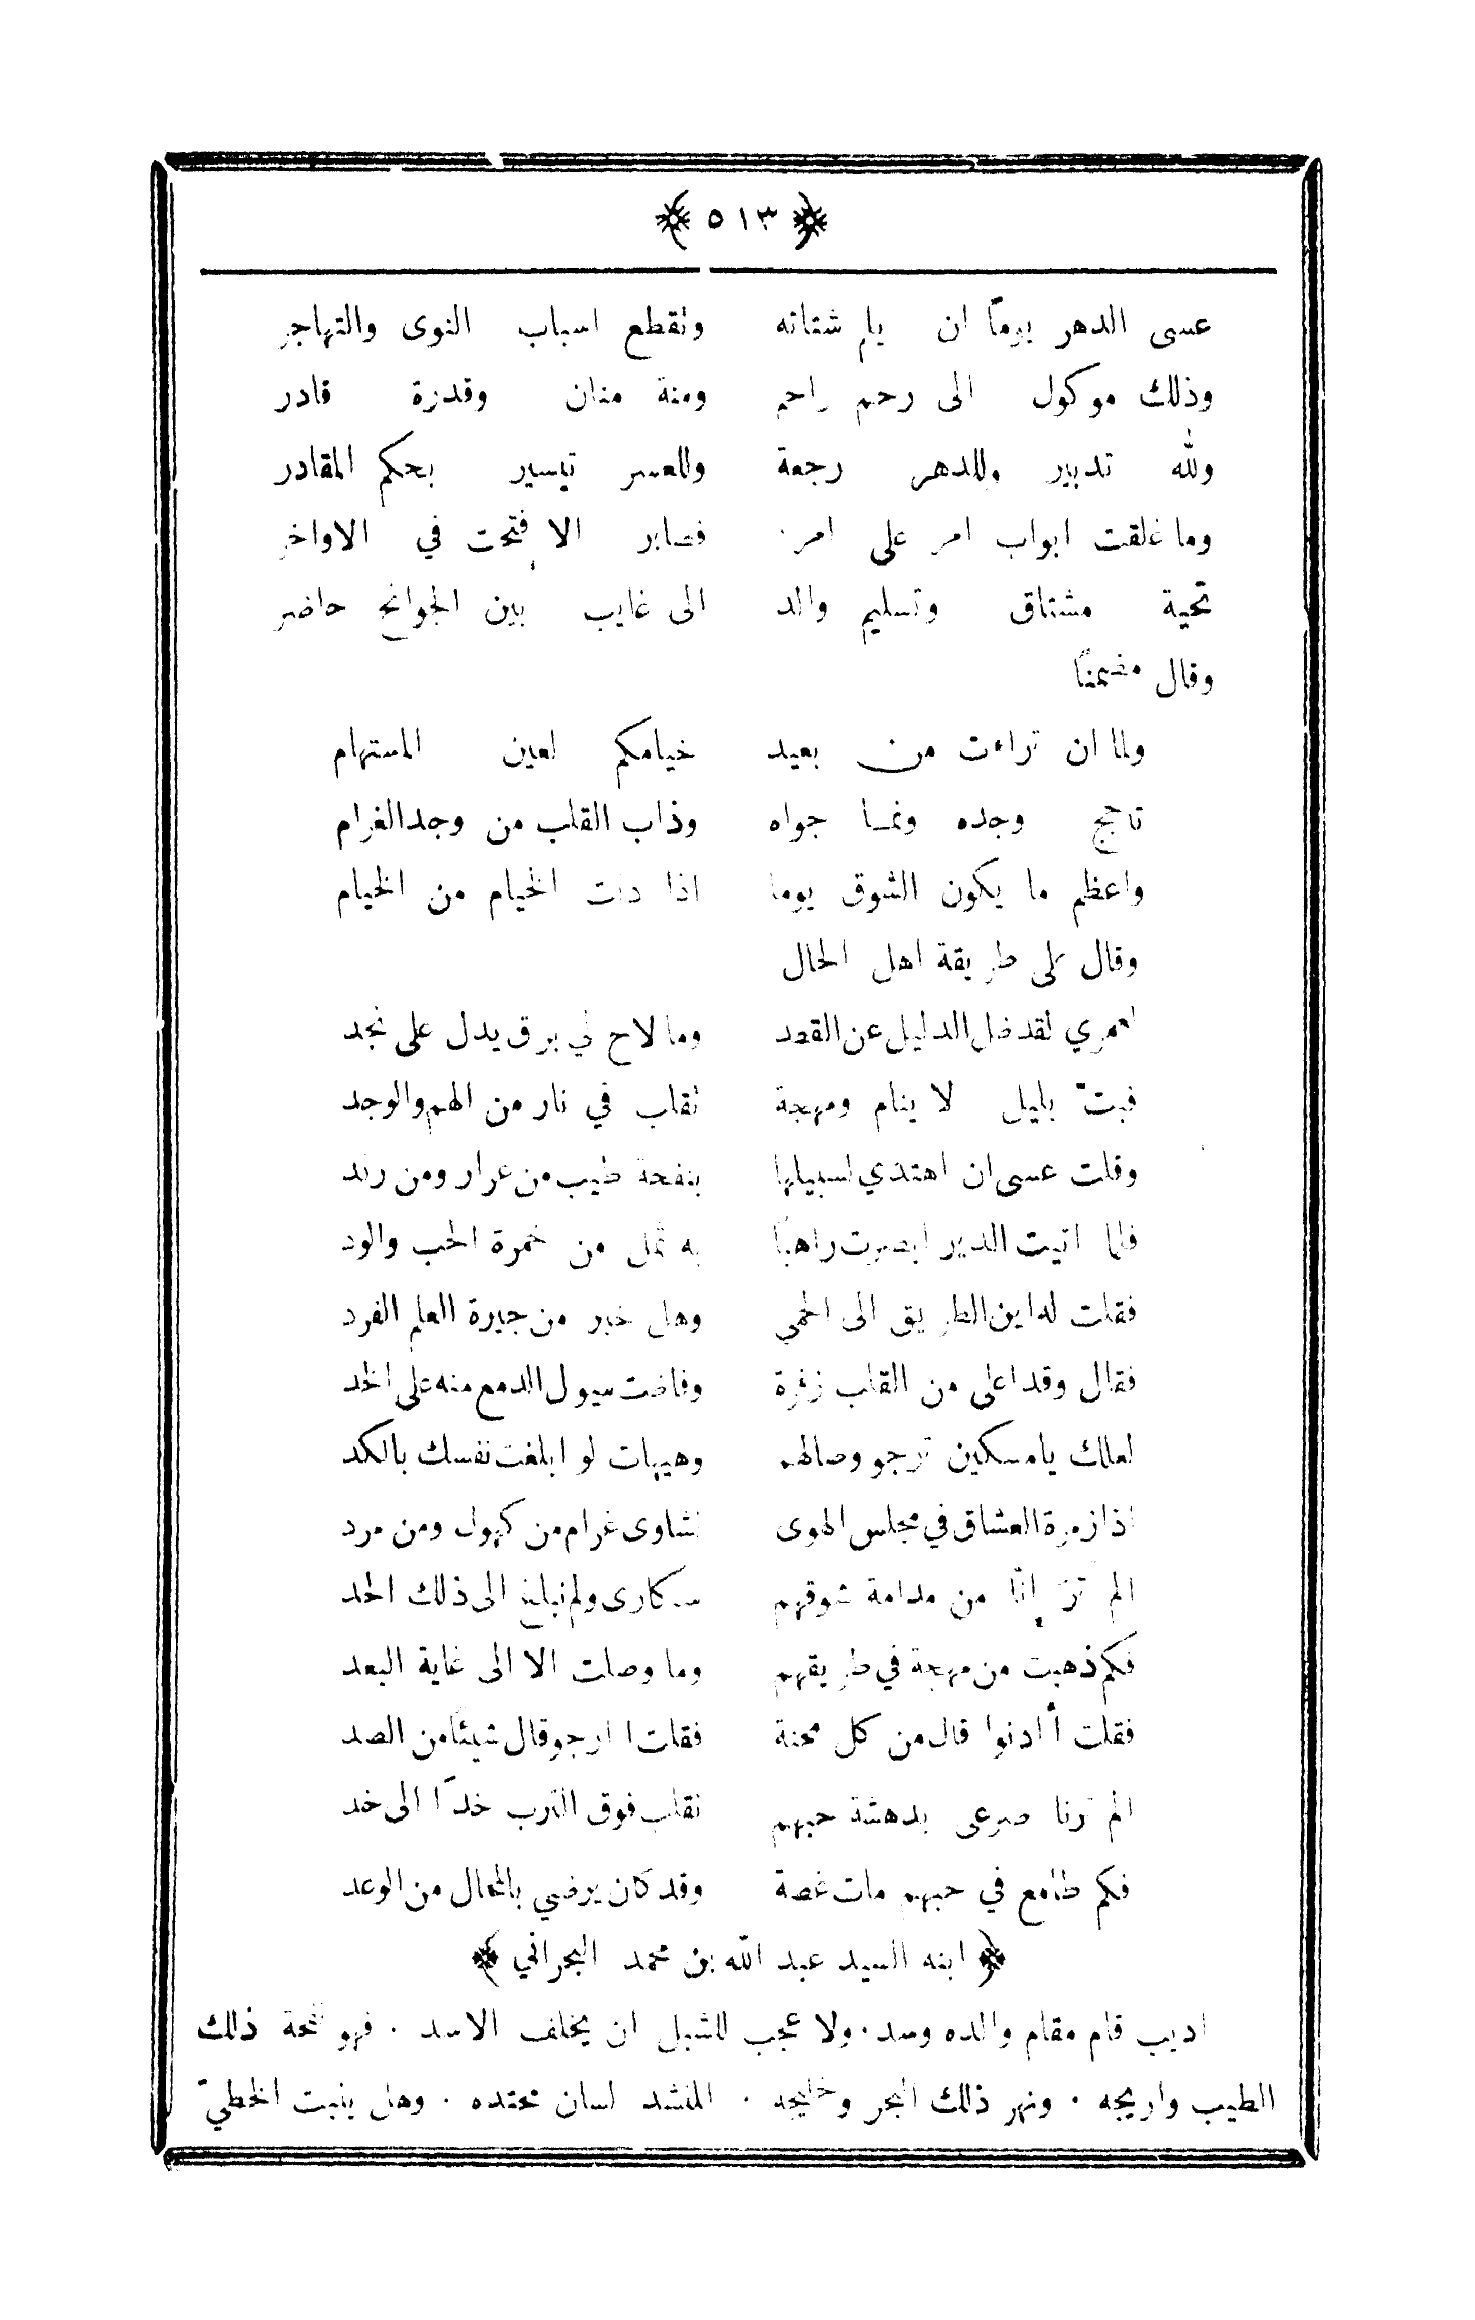 ﴿ ٥١٣ ﴾
عسى الدهر يومًا ان يلم شتاته وتقطع اسباب النوى والتهاجر
وذلك موكول الى رحم راحم ومنة منان وقدرة قادر
ولله تدبير وللدهر رجعة وللعسر تيسير بحكم المقادر
وما غلقت ابواب امر على امرء فصابر الا فتحت في الاواخر
تحية مشتاق وتسليم والد الى غايب بين الجوانح حاضر
وقال مضمنًا
ولما ان تراءت من بعيد خيامكم لعين المستهام
تاجج وجده ونما جواه وذاب القلب من وجد الغرام
واعظم ما يكون الشوق يوما اذا دنت الخيام من الخيام
وقال على طريقة اهل الحال
لعمري لقد ضل الدليل عن القصد وما لاح لي برق يدل على نجد
فبتّ بليل لا ينام ومهجة تقلب في نار من الهم والوجد
وقلت عسى ان اهتدي لسبيلها بنفحة طيب من عرار ومن رند
فلما اتيت الدير ابصرت راهبًا به ثمل من خمرة الحب والود
فقلت له اين الطريق الى الحمى وهل خبر من جيرة العلم الفرد
فقال وقد اعلى من القلب زفرة وفاضت سيول الدمع منه على الخد
لعلك يا مسكين ترجو وصالهم وهيهات لو ابلغت نفسك بالكد
اذا زمرة العشاق في مجلس الهوى نشاوى غرام من كهول ومن مرد
الم ترَ إنّا من مدامة شوقهم سكارى ولم نبلغ الى ذلك الحد
فكم ذهبت من مهجة في طريقهم وما وصلت الا الى غاية البعد
فقلت أ ادنوا قال من كل محنة فقلت ا ارجو قال شيئًا من الصد
الم ترنا صرعى بدهشة حبهم نقلب فوق الترب خدًا الى خد
فكم طامع في حبهم مات غصة وقد كان يرضى بالمحال من الوعد
﴿ ابنه السيد عبد الله بن محمد البحراني ﴾
اديب قام مقام والده وسد . ولا عجب للشبل ان يخلف الاسد . فهو نفحة ذلك
الطيب واريجه . ونهر ذلك البحر وخليجه . المنشد لسان محتده . وهل ينبت الخطيّ